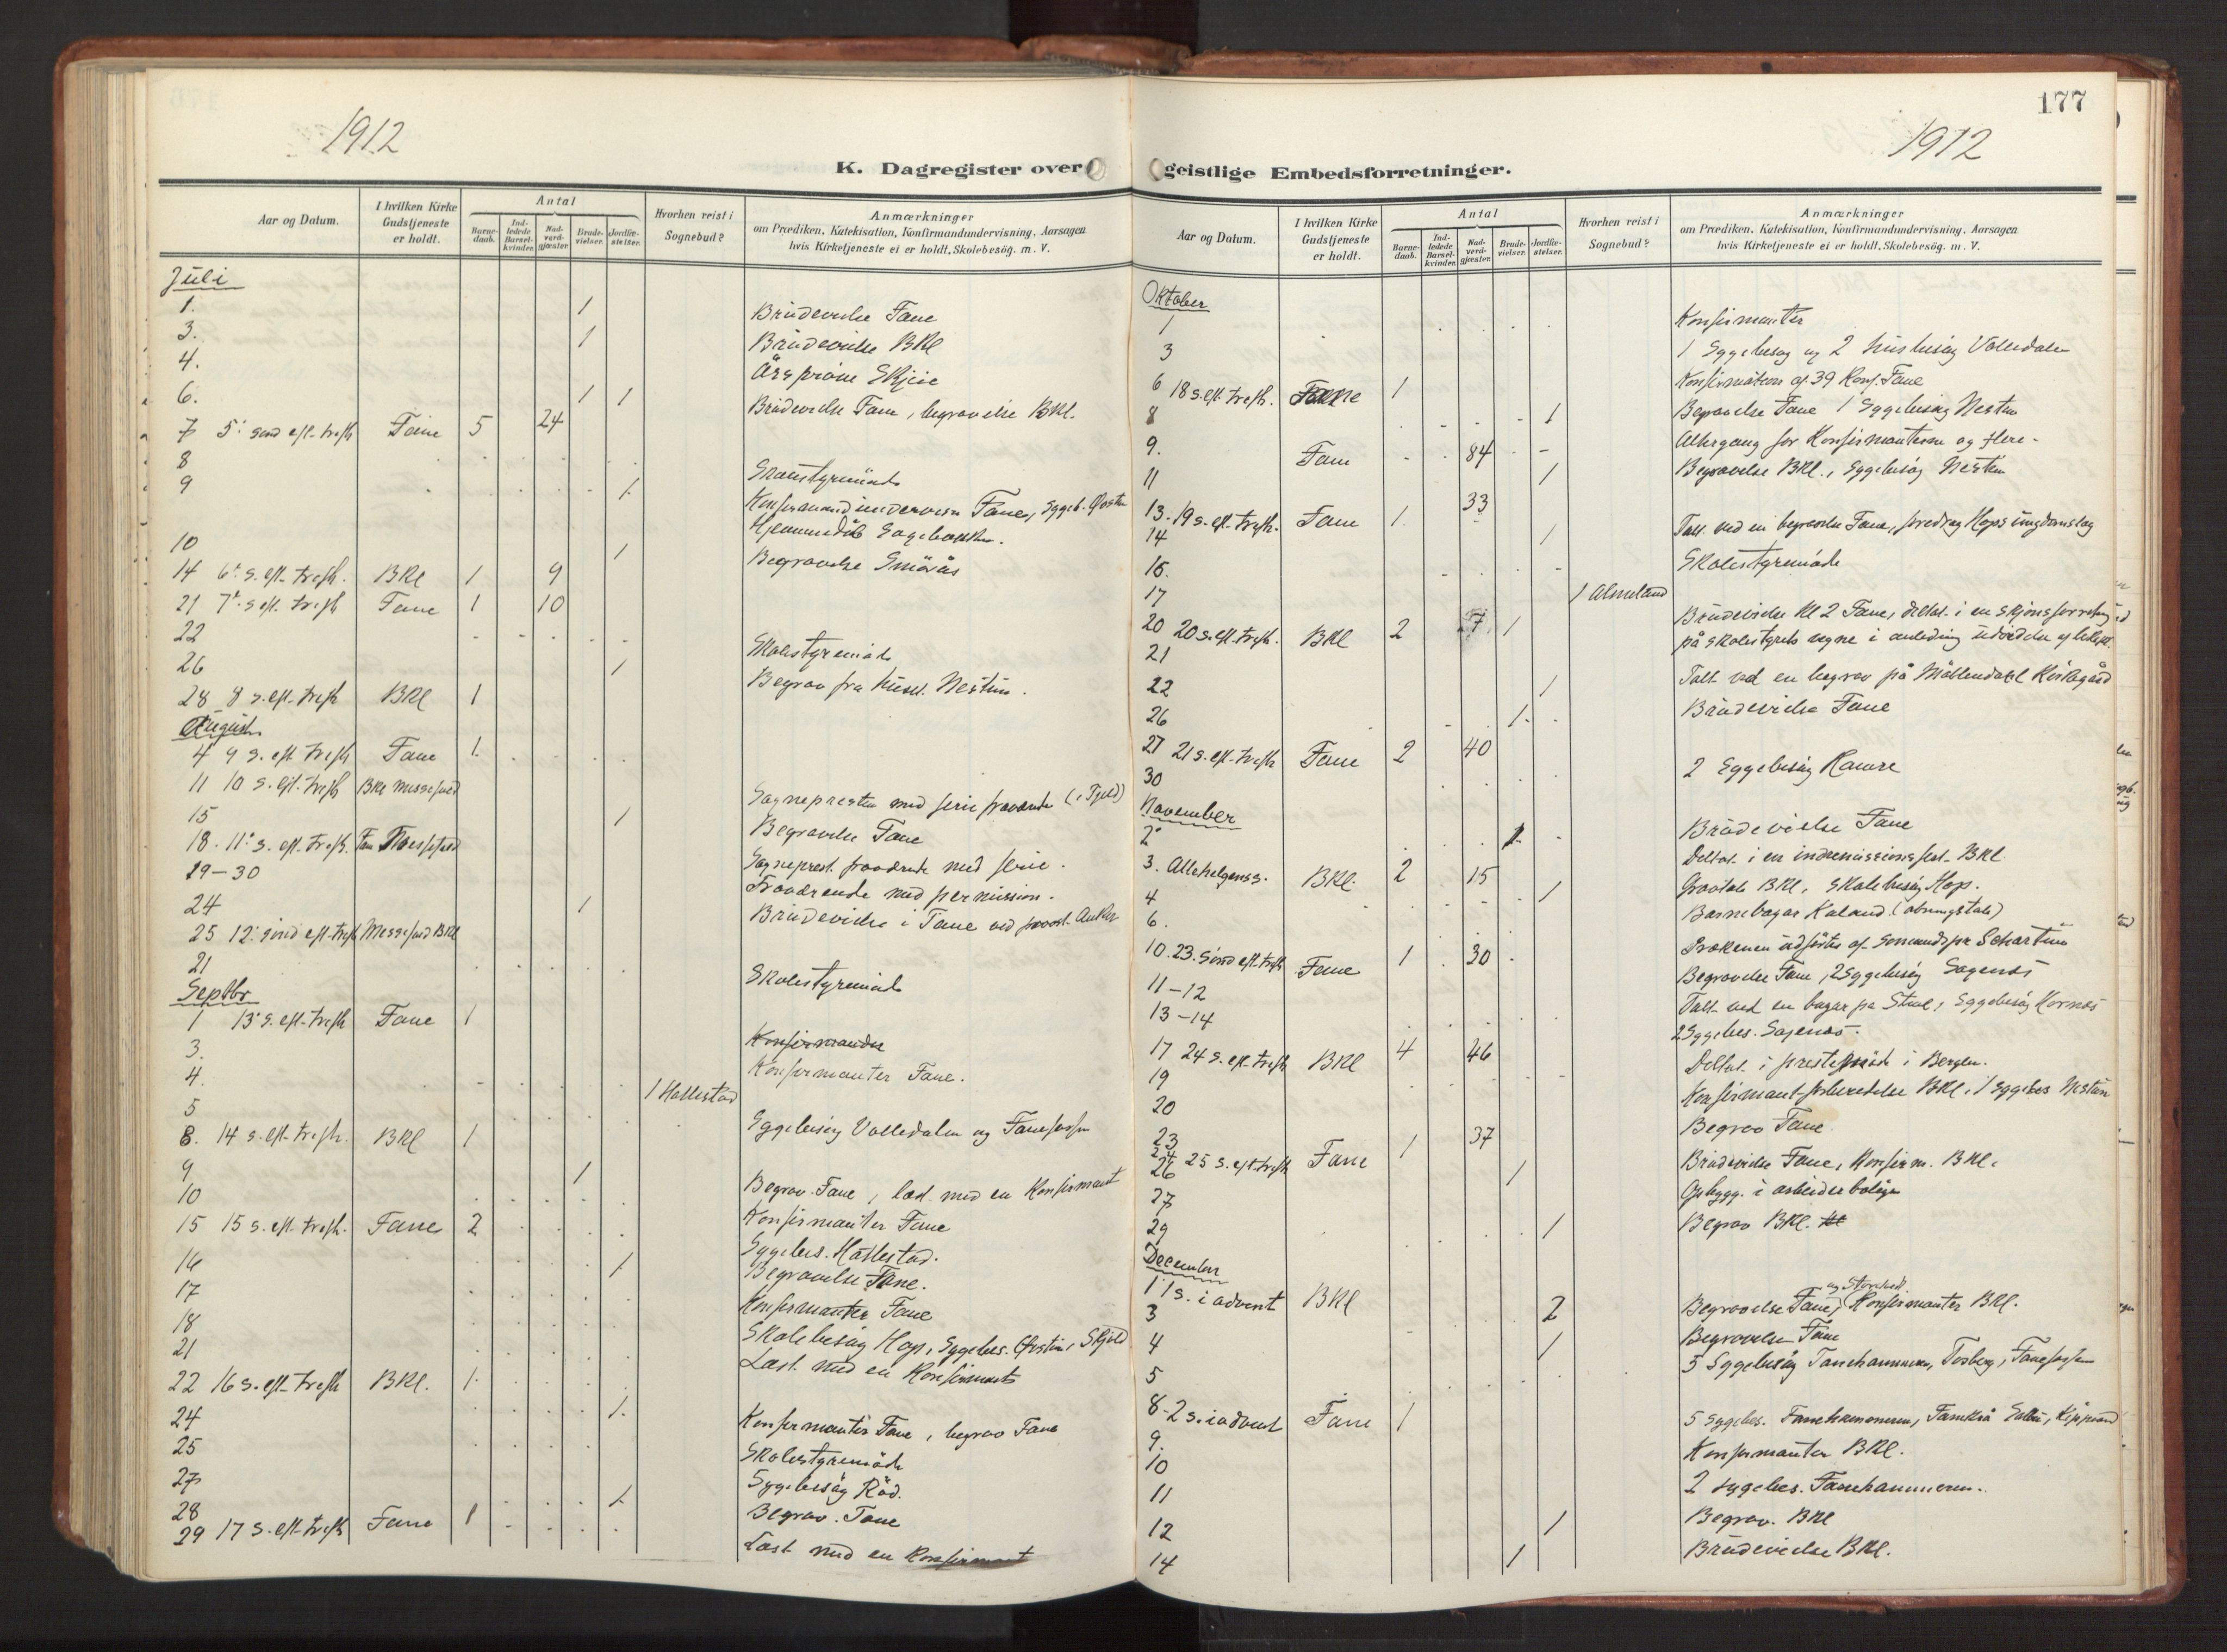 1912
K. Dagregister over
Aar og Datum.
I hvilken Kirke Gudstjeneste er holdt.
Antal
Barnedaab.
Indledede Barselkvinder.
Nadverdgjæster
Brudevielser.
Jordfæstelser.
Hvorhen reist i Sognebud?
Anmærkninger
om Prædiken, Katekisation, Konfirmandundervisning, Aarsagen
hvis Kirketjeneste ei er holdt, Skolebesøg. m. V.
Juli
1. 1 Brudevielse Fane
3. 1 Brudevielse BKl
4. Årsprøve Skjeie
6. 1 1 Brudevielse Fane, begravelse BKl.
7 5. sønd eft. trefh Fane 5 24
8
9 1. Konfirmandundervisn Fane, Sygeb.
10
1 Begravelse Smörås
14 6. s. eft. trefh. BKl 1 9
21 7. s eft. trefh Fane 1 10
22 Skolestyremöde
26 1 Begrav fra huset. Nestun.
28 8 s. eft. trefh BKl 1
August
4 9 s. eft trefh Fane 1.
11 10 s. eft. trefh BKl messefald
15 1 Sognepresten med ferie fraværende
Begravelse Fane
18. 11. s. eft. trefh. Fan Messefald
19-30 Sogneprest. fraværende med ferie.
24 1 Fraværende med permission.
Brudevielse i Fane ved provst
25 12. sönd eft trefh Messefald BKl
21 Skolestyremöde
Septbr
1 13. s. eft. trefh Fane 1
3. Konfirmander
4. Konfirmanter Fane.
5 1 Hallestad
8. 14 s. eft. trefh. BKl 1 Sygebesög Volledalen og Fanefossen
9 1
10 Begrav. Fane, læst med en Konfirmant
15 15 s. eft. trefh. Fane 2 Konfirmanter Fane
16 1 Sygebes. Hallestad.
Begravelse Fane.
17 Konfirmanter Fane
18
21 Skolebesög Hop, Sygebes.
22 16 s. eft. trefh BKl. 1 Læst med en Konfirmant
24 1. Konfirmanter Fane, begrav Fane
25 Skolestyremöde
27 1. Sygebesög Råd.
28 Begrav. Fane
29 17 s. eft. trefh Fane 1
Læst med en Konfirmant
177
1912
geistlige Embedsforretninger.
Aar og Datum.
I hvilken Kirke Gudstjeneste er holdt.
Antal
Barnedaab.
Indledede Barselkvinder.
Nadverdgjæster.
Brudevielser.
Jordfæstelser.
Hvorhen reist i Sognebud?
Anmærkninger
om Prædiken, Katekisation, Konfirmandundervisning, Aarsagen
hvis Kirketjeneste ei er holdt, Skolebesög. m. V.
Oktober
1 Konfirmanter
3 1 Sygebesög og 2 husbesög Volledalen
6 18 s. eft. trefh. Fane 1 Konfirmation af 39 Konf. Fane
8 1 Begravelse Fane 1 Sygebesög Nestun
9. Fane 84 Altergang for Konfirmanterne og flere.
11 1 Begravelse BKl., Sygebesög Nestun
13. 19 s. eft. trefh. Fane 1. 33
14 1 Talt ved en begravelse Fane, foredrag Hops ungdomslag
16. Skolestyremöde
17 1 Almeland
20 20 s. eft. trefh. BKl 2 7 1 Brudevielse Kl 2 Fane, deltat i en skjönsforretning
på Skolestyrets vegne i anledning
21
22 1 Talt ved en begrav på Möllendahl Kirkegård
26 1. Brudevielse Fane
27 21 s. eft. trefh Fane 2 40
30 2 Sygebesög
November
2. 1. Brudevielse Fane
3. Allehelgenss. BKl. 2 15 Deltat i en indremissionsfest BKl.
4 1 Gravtale BKl, Skolebesög Hop.
6. Barnebazar Kaland. (åbningstale)
10. 23. sönd eft. trefh Fane 1 30 Prækenen udförtes af
11-12 Begravelse Fane, 2 Sygebesög
13-14 Talt ved en bazar på Stue, Sygebesög
2 Sygebes.
17 24 s. eft trefh BKl 4 46
19 Deltat i prestemöde i Bergen.
20 Konfirmantforberedelse BKl. 1 Sygebes Nestun
23 Begrav Fane
24 25 s. eft. trefh Fane 1 37
26 1 Brudevielse Fane, Konfirm. BKl.
27 Opbygg. i arbeiderbolige
29 1 Begrav BKl.
December
1 1 s. i advent BKl
3 2 Begravelse Fane, Konfirmanter BKl.
4 1 Begravelse Fane
5 5 Sygebesög Fanehammeren, Fanefossen
8 2 s. i advent Fane 1
9. 5 sygebes. Fanehammeren,
10 Konfirmanter BKl.
11 2 sygebes. Fanehammeren.
12 1 Begrav. BKl
14 1 Brudevielse BKl.